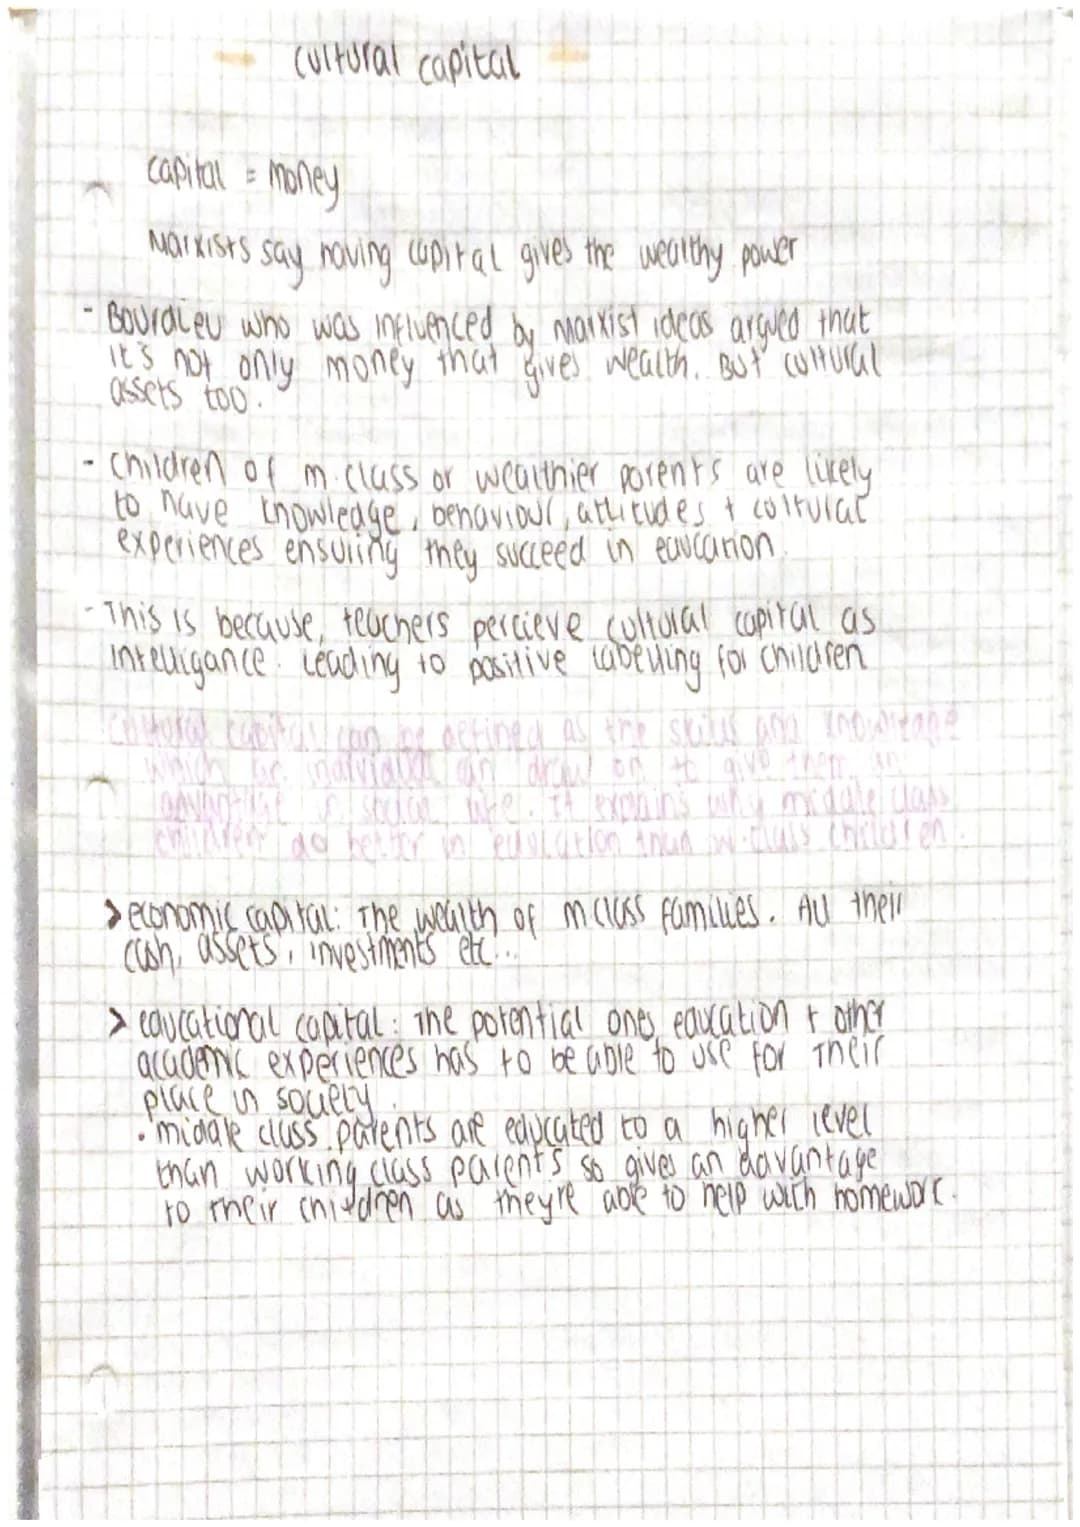 cultural capital
capital = money
Marxists say having capital gives the wealthy power
- Bourdieu who was influenced by marxist ideas argued that
it's not only money that gives wealth. But cultural
assets too.
- children of m.class or wealthier parents are likely
to have knowledge, behaviour, attitudes + cultural
experiences ensuring they succeed in education.
- This is because, teachers percieve cultural capital as
intelligance. Leading to positive labelling for children
cultural capital can be defined as the skills and knowledge
which an individual can draw on to give them an
advantage in social life. It explains why middle class
children do better in education than w.class children.
> economic capital: The wealth of m class families. All their
cash, assets, investments etc...
> educational capital: The potential ones education + other
academic experiences has to be able to use for their
place in society.
• middle class parents are educated to a higher level
than working class parents so gives an advantage
to their children as theyre able to help with homework.